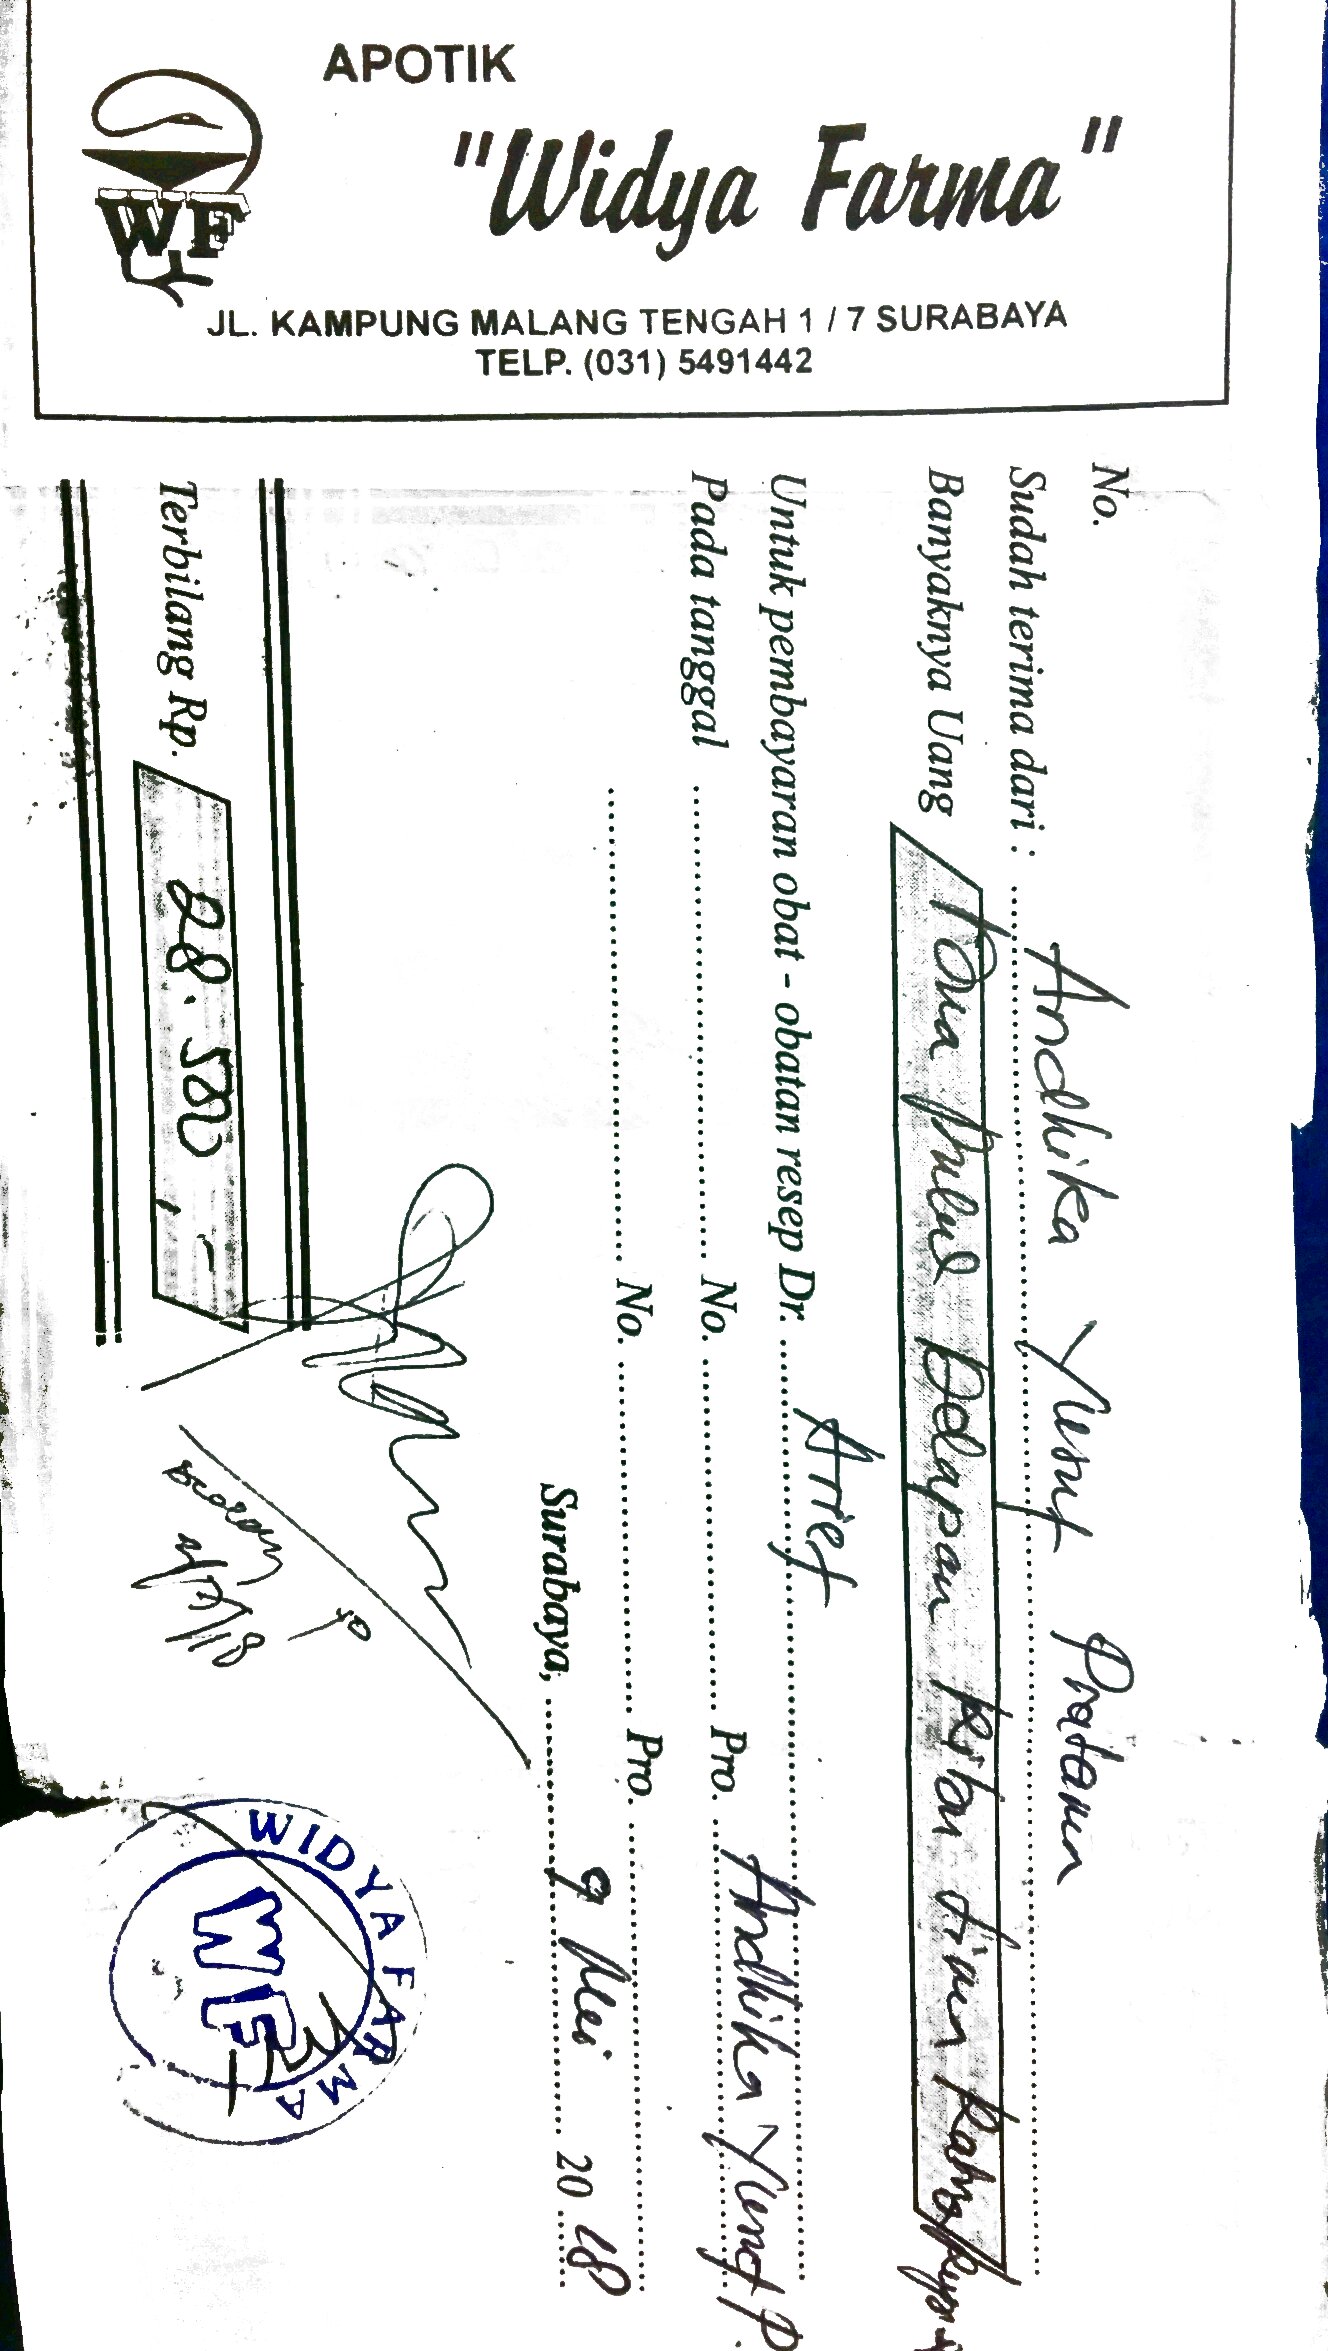 APOTIK
"Widya Farma"
WF
JL. KAMPUNG MALANG TENGAH 1 / 7 SURABAYA
TELP. (031) 5491442
No.
Sudah terima dari : Andhika Yusuf Pratama
Banyaknya Uang Dua puluh Delapan Ribu Lima Ratus Rupiah
Untuk pembayaran obat - obatan resep Dr. Arief
Pada tanggal No. Pro. Andhika Yusuf P.
No. Pro.
Surabaya, 9 Mei 2018
Terbilang Rp. 28.500,-
WIDYA FARMA
WF